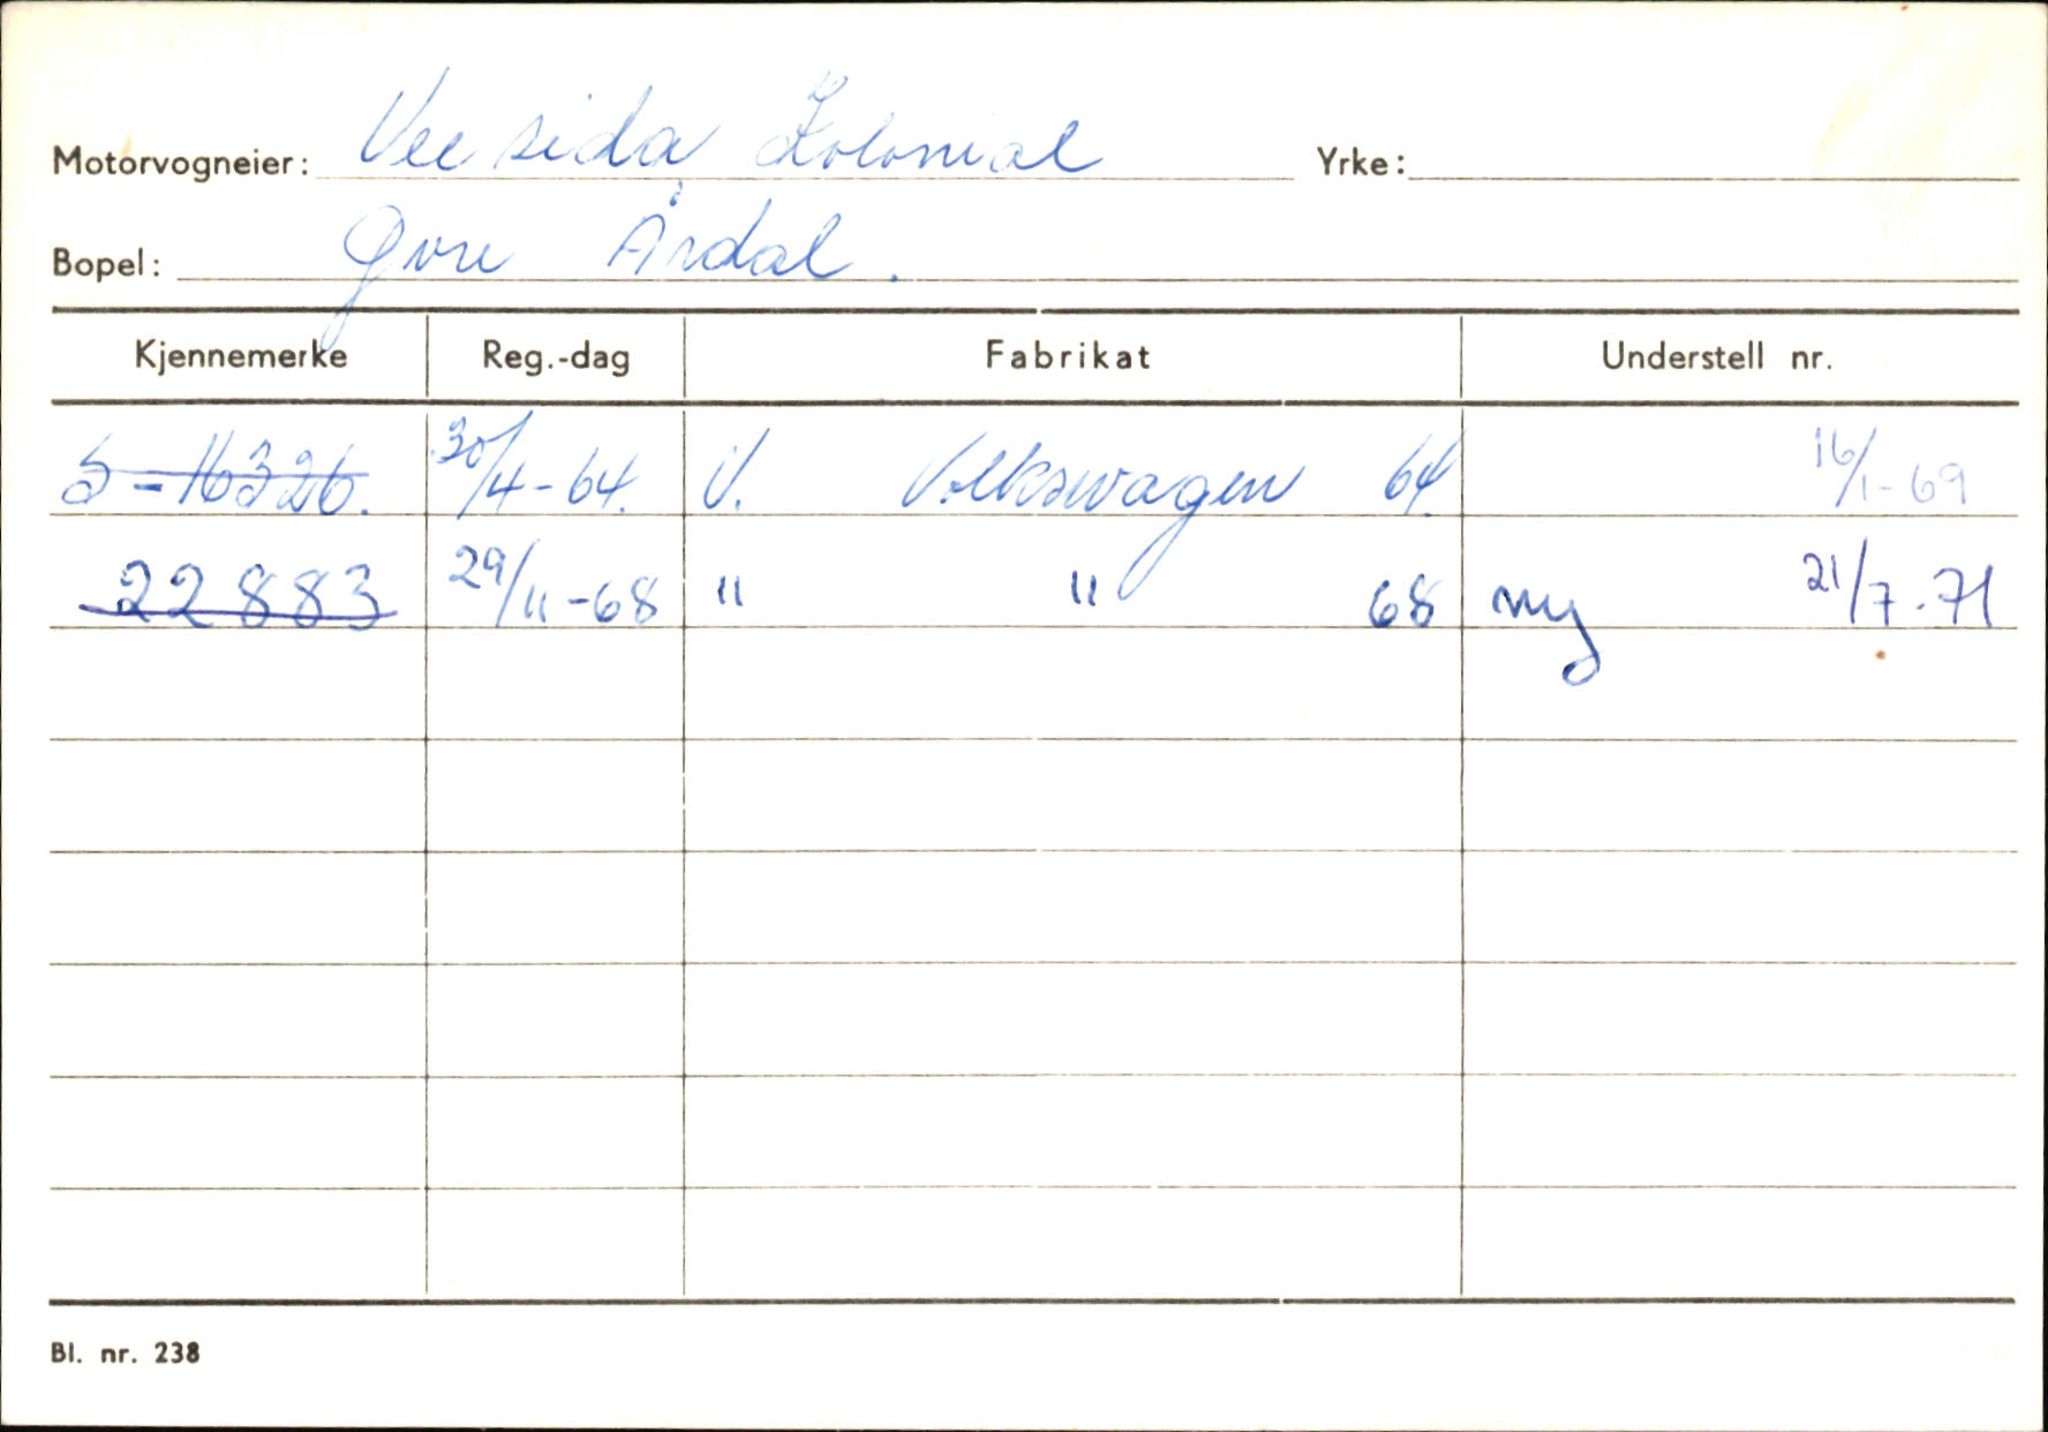 Motorvogneier: Vee sida Kolonial Yrke:
Bopel: Øvre Årdal.
Kjennemerke Reg.-dag Fabrikat Understell nr.
S-16326. 30/4-64. V. Volkswagen 64. 16/1-69
22883 29/11-68 " " 68 ny 21/7-71
Bl. nr. 238